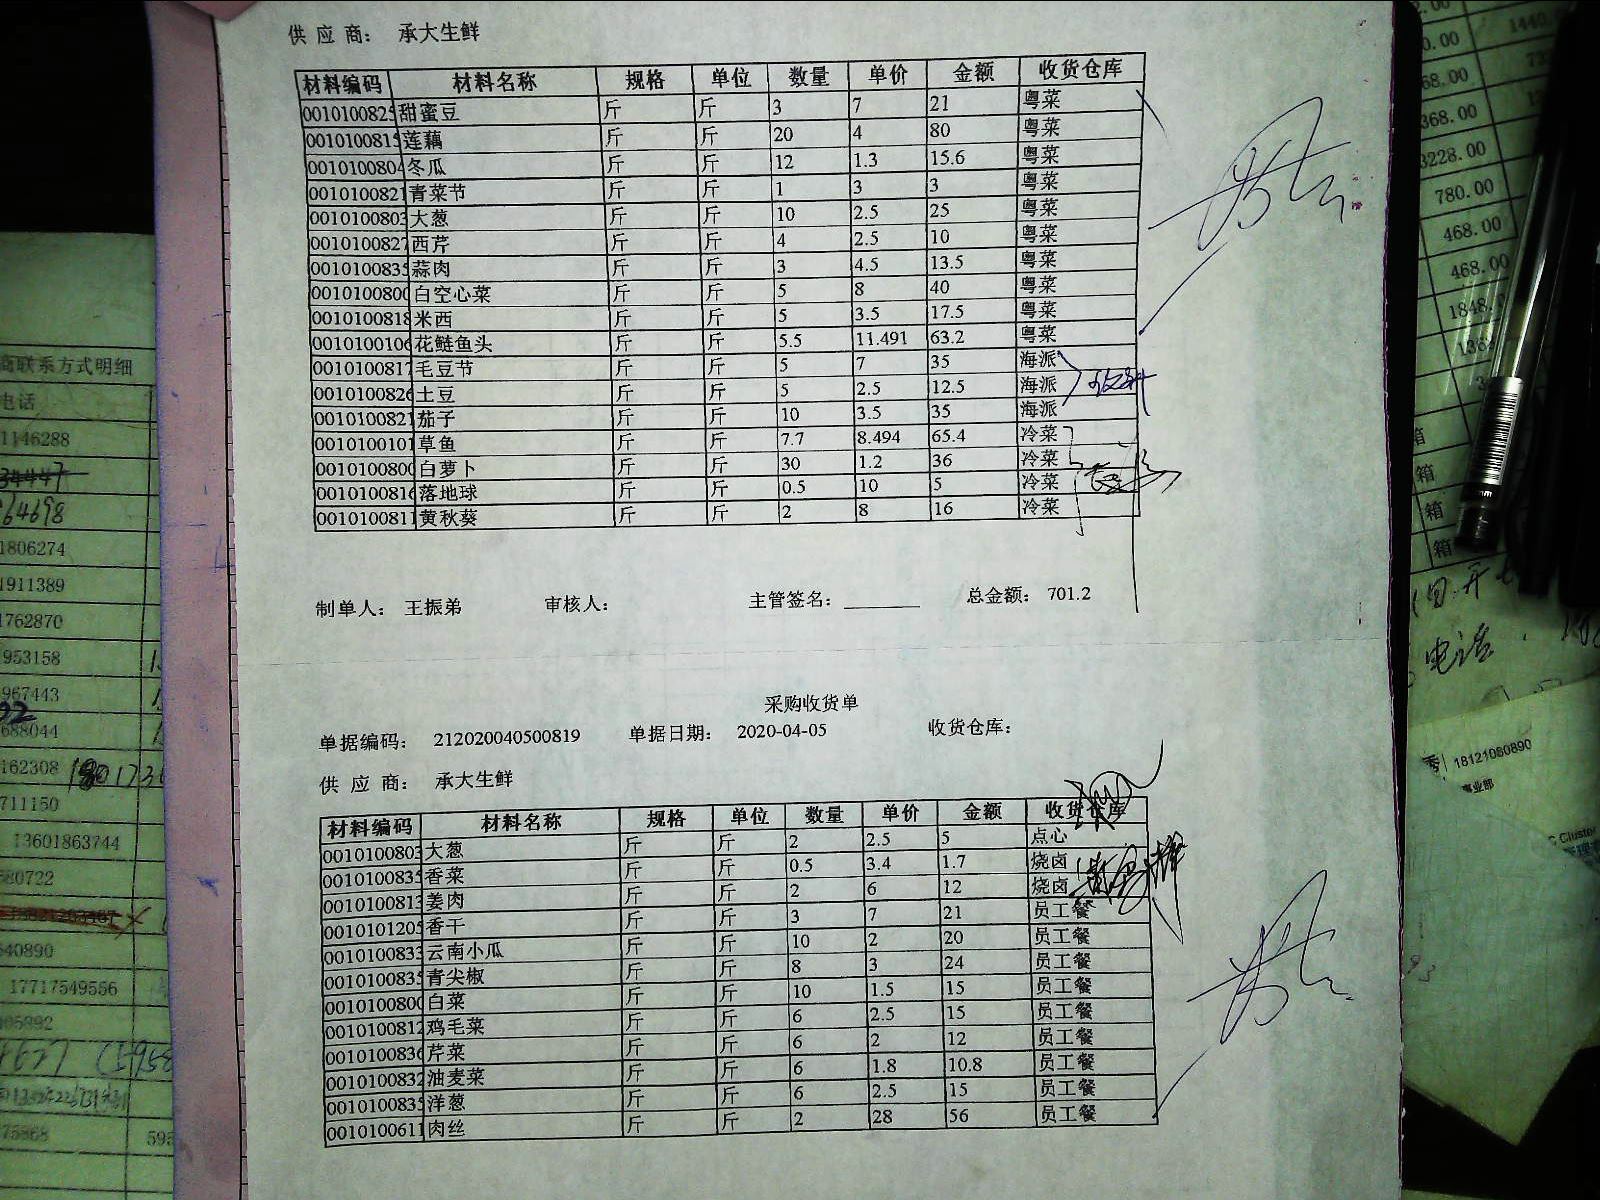 供 应 商： 承大生鲜
材料编码 材料名称 规格 单位 数量 单价 金额 收货仓库
0010100825 甜蜜豆 斤 斤 3 7 21 粤菜
0010100815 莲藕 斤 斤 20 4 80 粤菜
0010100804 冬瓜 斤 斤 12 1.3 15.6 粤菜
0010100821 青菜节 斤 斤 1 3 3 粤菜
0010100803 大葱 斤 斤 10 2.5 25 粤菜
0010100827 西芹 斤 斤 4 2.5 10 粤菜
0010100835 蒜肉 斤 斤 3 4.5 13.5 粤菜
0010100800 白空心菜 斤 斤 5 8 40 粤菜
0010100818 米西 斤 斤 5 3.5 17.5 粤菜
0010100106 花鲢鱼头 斤 斤 5.5 11.491 63.2 粤菜
0010100817 毛豆节 斤 斤 5 7 35 海派
0010100826 土豆 斤 斤 5 2.5 12.5 海派
0010100821 茄子 斤 斤 10 3.5 35 海派
0010100101 草鱼 斤 斤 7.7 8.494 65.4 冷菜
0010100800 白萝卜 斤 斤 30 1.2 36 冷菜
0010100816 落地球 斤 斤 0.5 10 5 冷菜
0010100811 黄秋葵 斤 斤 2 8 16 冷菜
制单人： 王振弟 审核人： 主管签名： 总金额： 701.2
采购收货单
单据编码： 212020040500819 单据日期： 2020-04-05 收货仓库：
供 应 商： 承大生鲜
材料编码 材料名称 规格 单位 数量 单价 金额 收货仓库
0010100803 大葱 斤 斤 2 2.5 5 点心
0010100835 香菜 斤 斤 0.5 3.4 1.7 烧卤
0010100813 姜肉 斤 斤 2 6 12 烧卤
0010101205 香干 斤 斤 3 7 21 员工餐
0010100833 云南小瓜 斤 斤 10 2 20 员工餐
0010100835 青尖椒 斤 斤 8 3 24 员工餐
0010100800 白菜 斤 斤 10 1.5 15 员工餐
0010100812 鸡毛菜 斤 斤 6 2.5 15 员工餐
0010100836 芹菜 斤 斤 6 2 12 员工餐
0010100832 油麦菜 斤 斤 6 1.8 10.8 员工餐
0010100835 洋葱 斤 斤 6 2.5 15 员工餐
0010100611 肉丝 斤 斤 2 28 56 员工餐
商联系方式明细
电话
1146288
1806274
1911389
1762870
953158
967443
688044
162308
711150
13601863744
580722
540890
17717549556
68.00
368.00
3228.00
780.00
468.00
468.00
箱
箱
箱
电话
18121060890
事业部